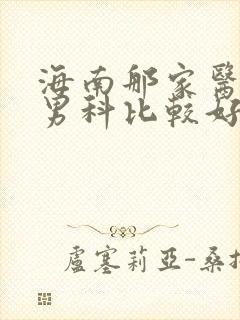 海南那家醫
男科比較好
盧塞莉亞-桑